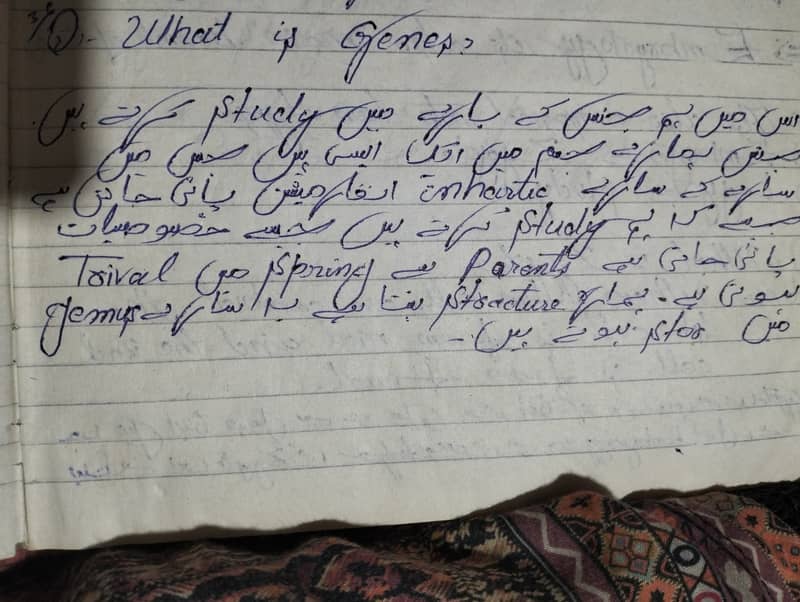 Q:- What is Genes?
اس میں ہم جنس کے بارے میں study کرتے ہیں.
جنس ہمارے جسم میں ایک ایسی ہیں جس میں
سارے کے سارے inhartic انفارمیشن پائی جاتی ہے
جسے کہ ہم study کرتے ہیں جیسے خصوصیات
پائی جاتی ہے Parents سے spring میں Traival
ہوتی ہے۔ ہمارا structure بنتا ہے یہ سارے genus
میں stor ہوتے ہیں۔